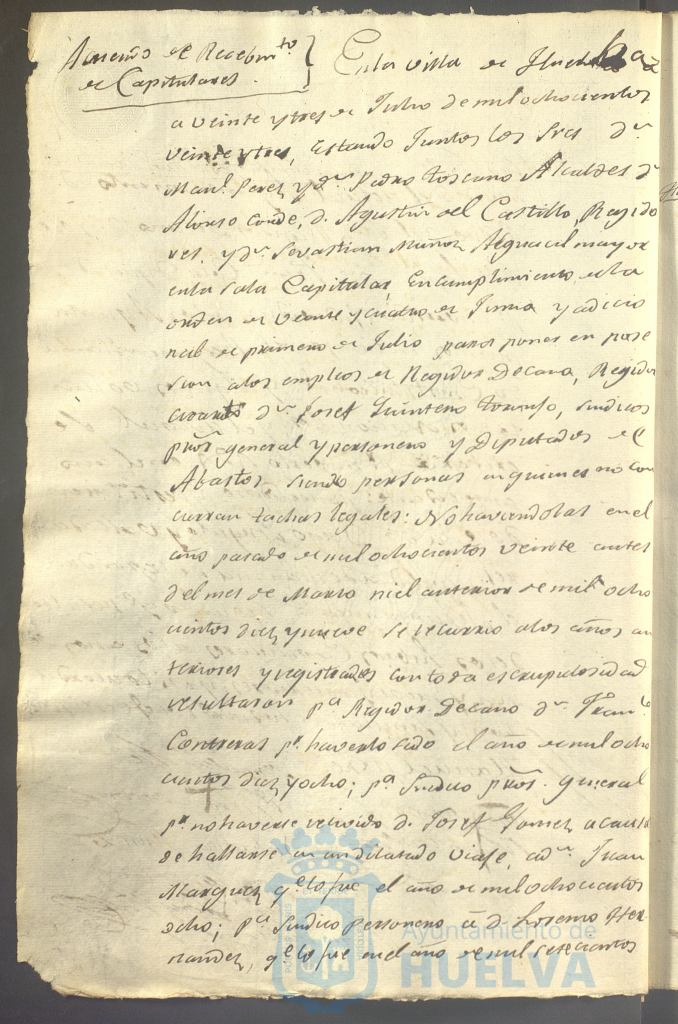 Acuerdo de Recebim.to
de Capitulares.
En la villa de Huelba
a veinte y tres de Julio de mil ochocientos
veinte y tres, Estando Juntos los Sres D.n
Man.l Perez y D.n Pedro Toscano Alcaldes D.n
Alonso Conde, D. Agustin del Castillo, Regido
res, y D.n Sevastian Muñoz Alguacil mayor
en la sala Capitular En cumplimiento de la
orden de Veinte y cuatro de Junio y adicio
nal de primero de Julio para poner en pose
sion a los empleos de Regidor Decano, Regidor
cuarto D.n Josef Quintero, sindicos
pror. general y personero y Diputados de
Abastos siendo personas en quienes no con
curran tachas legales: No haviendolas en el
año pasado de mil ochocientos veinte antes
del mes de Marzo ni el anterior de mil ocho
cientos diez y nueve se recurrio a los años an
teriores y registrados con toda escrupulosidad
resultaron p.a Regidor Decano D.n Fran.co
Contreras p.r haverlo sido el año de mil ocho
cientos diez y ocho; p.a Sindico pror. general
p.r no haverse recivido D. Josef Gomez a causa
de hallarse en un dilatado viaje, a D.n Juan
Marquez q.e lo fue el año de mil ochocientos
ocho; p.a Sindico Personero a D. Lorenzo Her
nandez, q.e lo fue en el año de mil setecientos
Ayuntamiento de
HUELVA